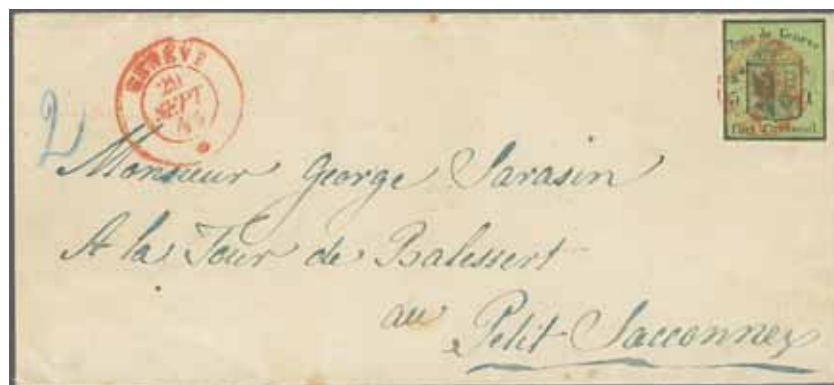 GENÈVE
29
SEPT
Poste de Genève
Port Cantonal
2
Monsieur George Sarasin
A la Tour de Balessert
au
Petit Saconnex